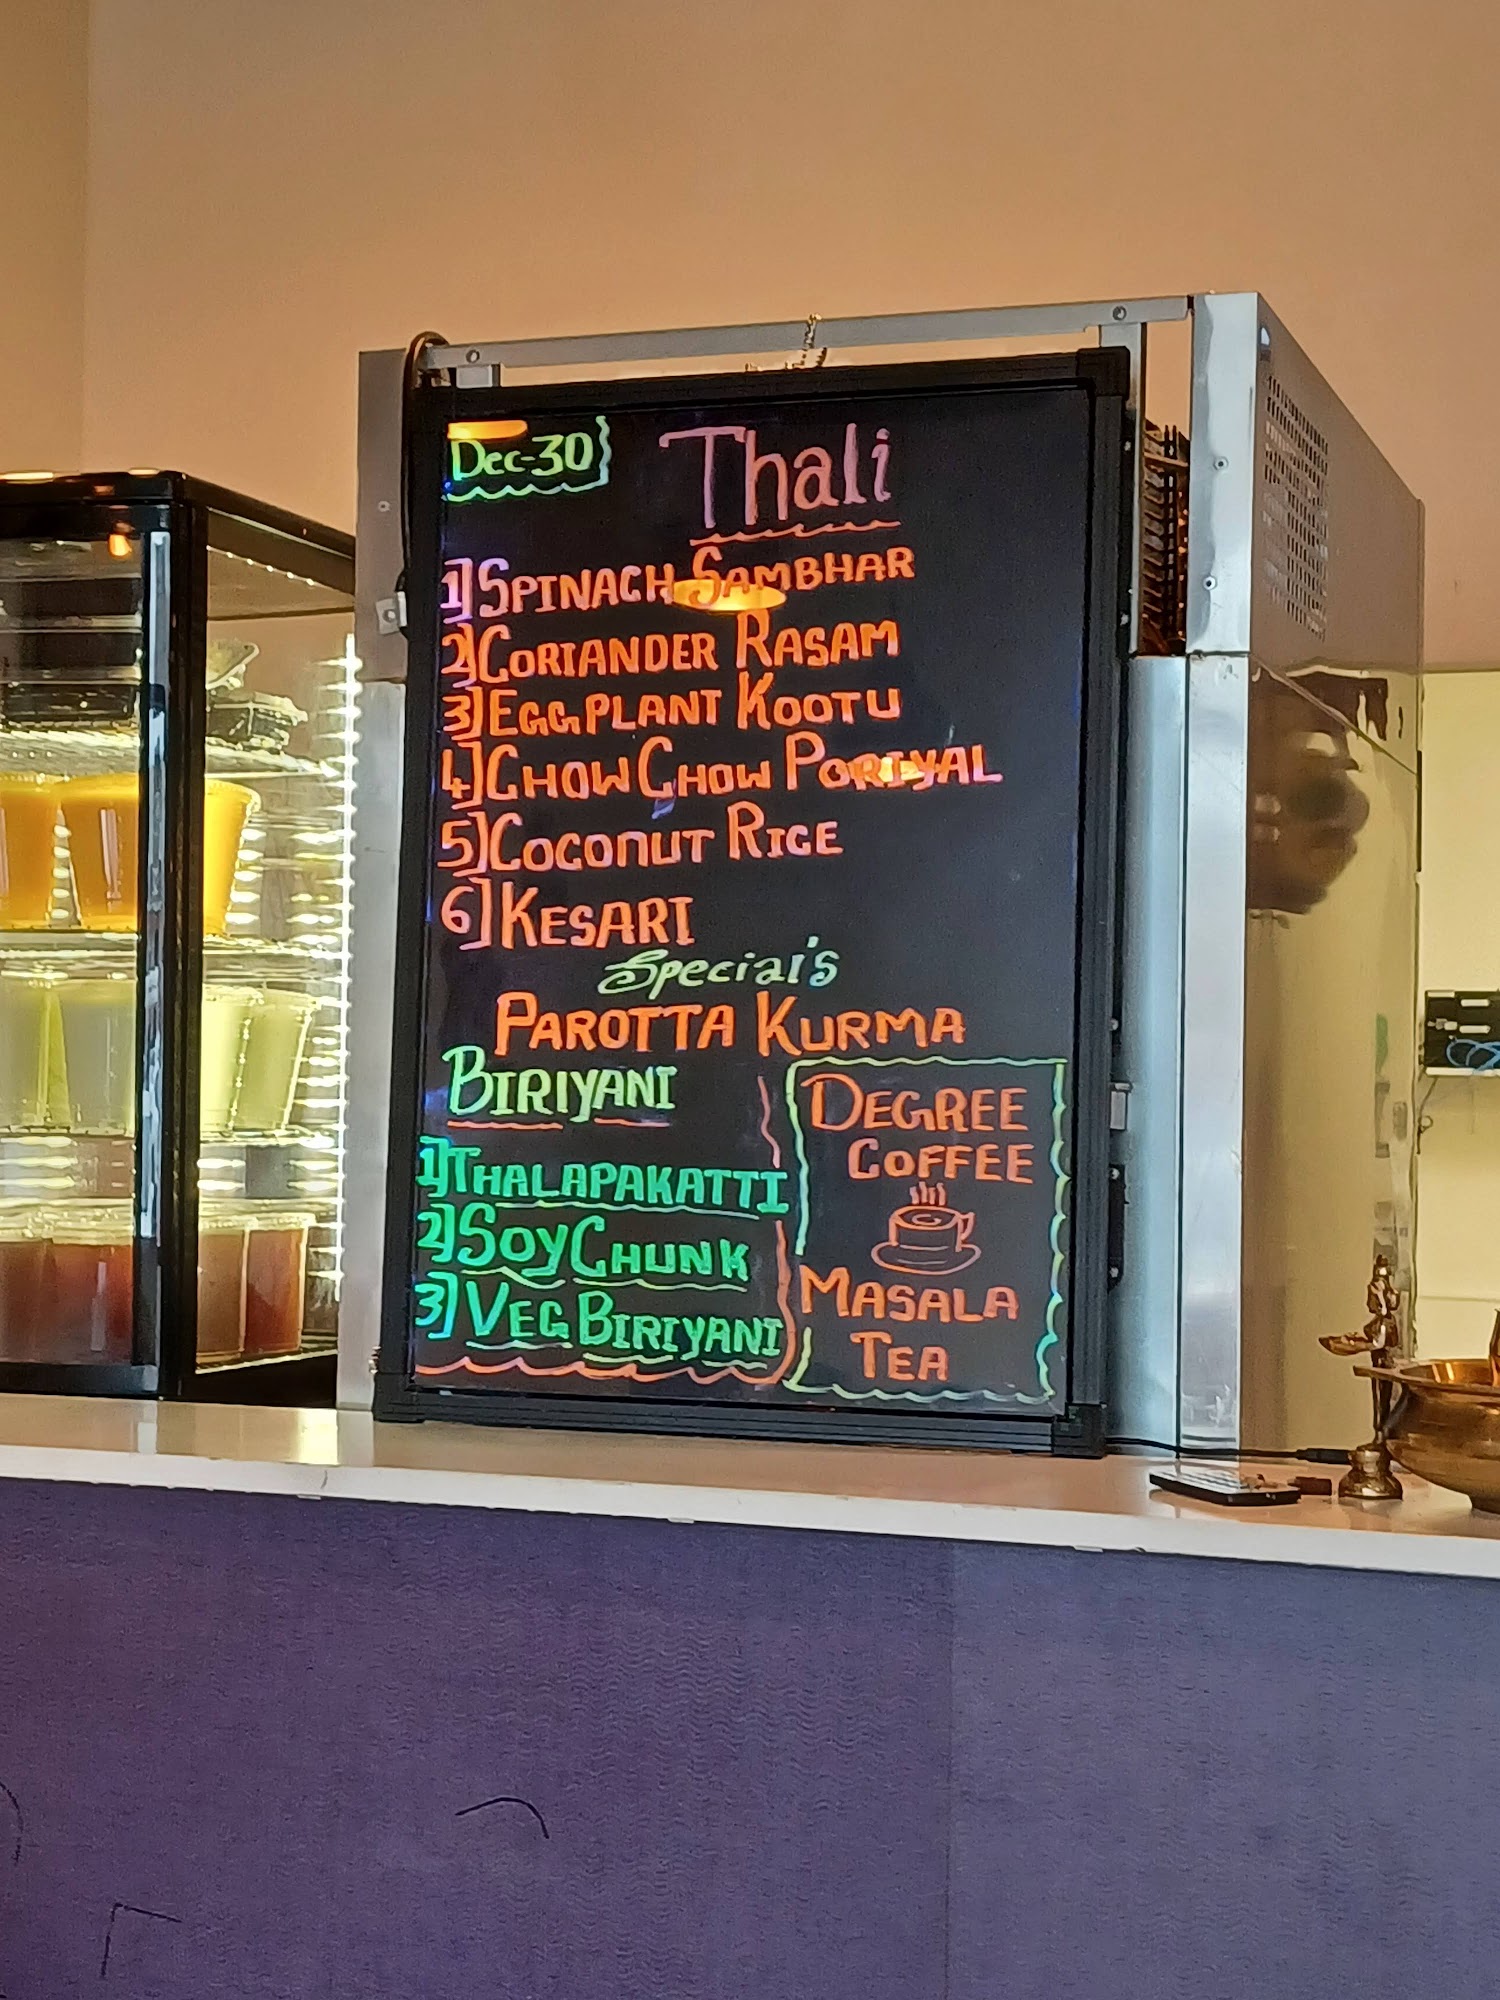 Dec-30
Thali
1] SPINACH SAMBHAR
2] CORIANDER RASAM
3] EGGPLANT KOOTU
4] CHOW CHOW PORIYAL
5] COCONUT RICE
6] KESARI
Special's
PAROTTA KURMA
BIRIYANI
1] THALAPAKATTI
2] SOY CHUNK
3] VEG BIRIYANI
DEGREE
COFFEE
MASALA
TEA